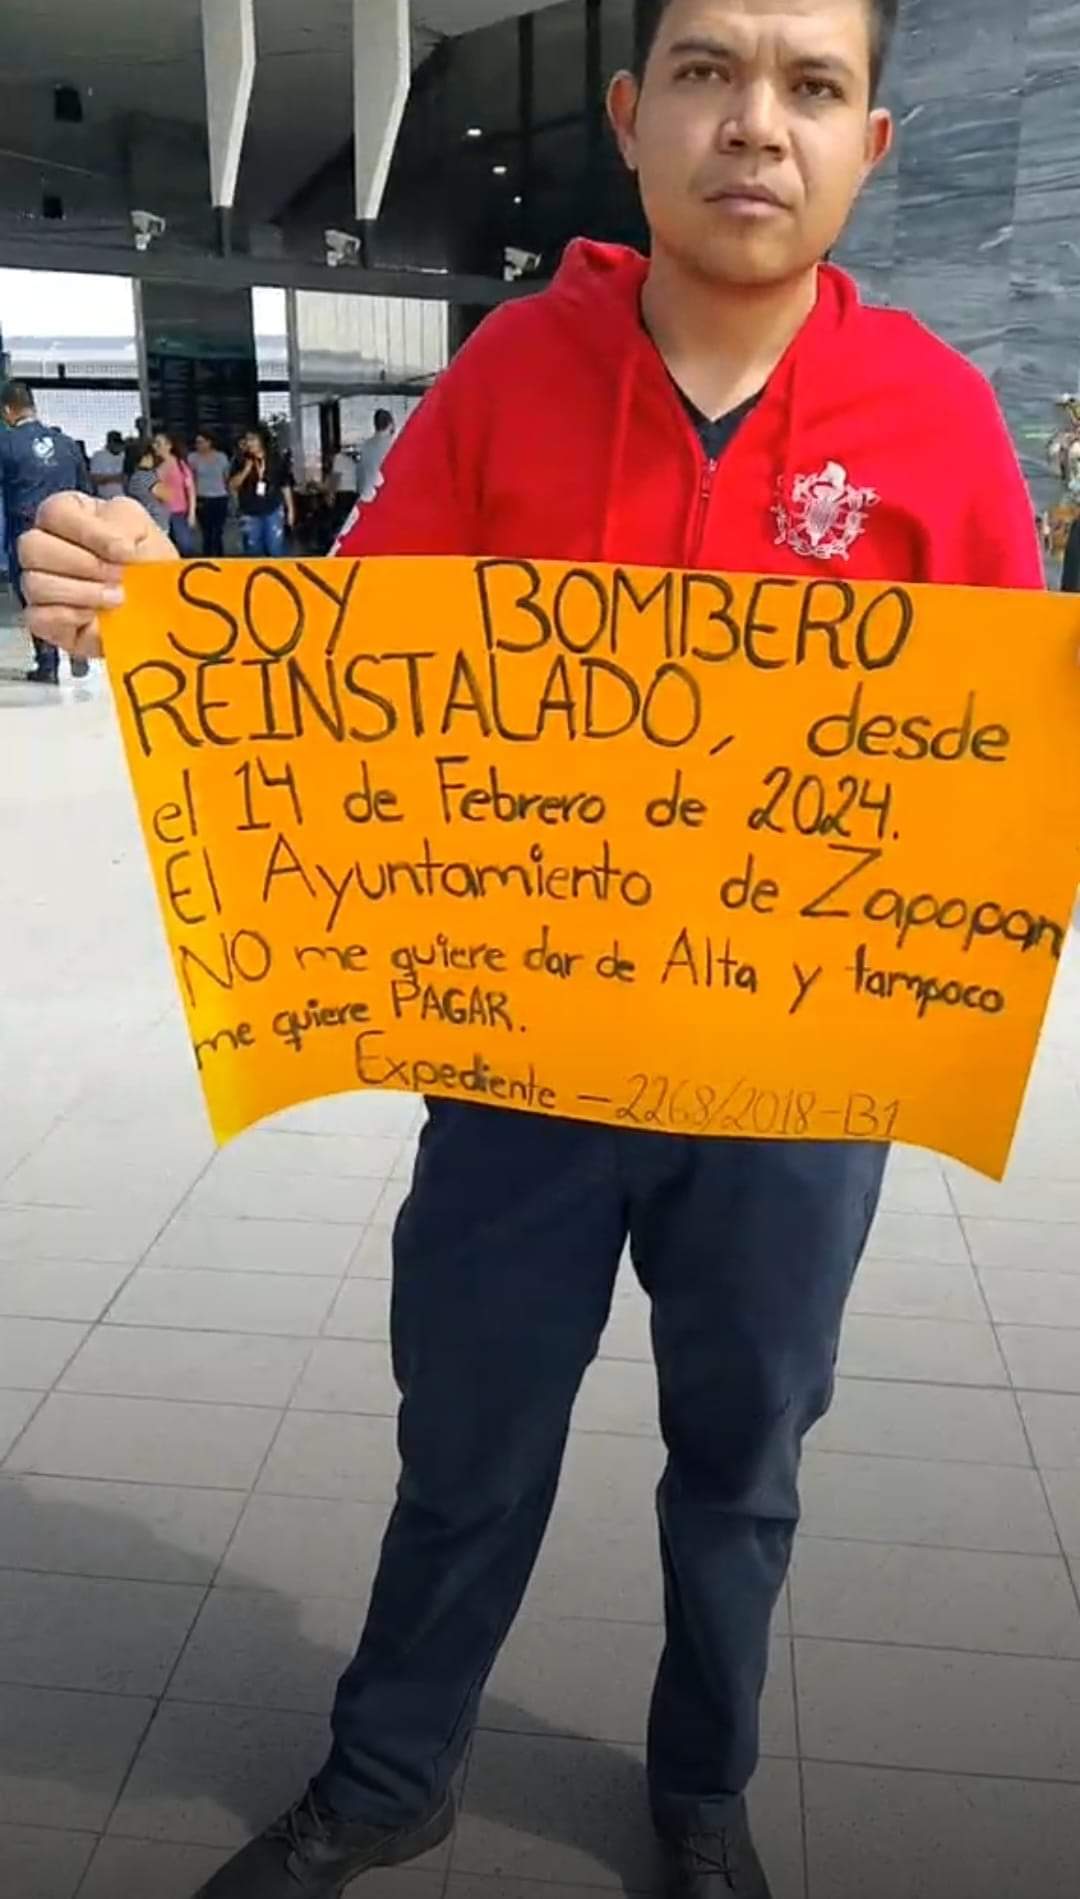 SOY BOMBERO
REINSTALADO, desde
el 14 de Febrero de 2024.
El Ayuntamiento de Zapopan
NO me quiere dar de Alta y tampoco
me quiere PAGAR.
Expediente - 2268/2018-B1